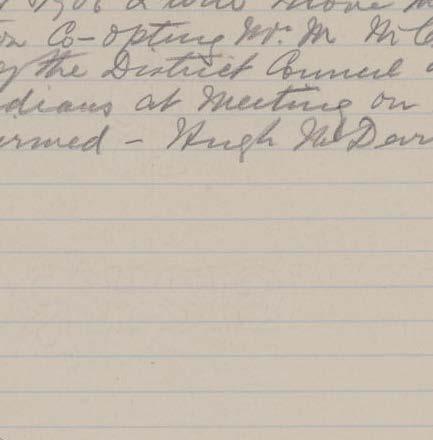 1906 I will move
Co-opting Mr. M McC
of the District Council
dians at Meeting on
rmed - Hugh McDer